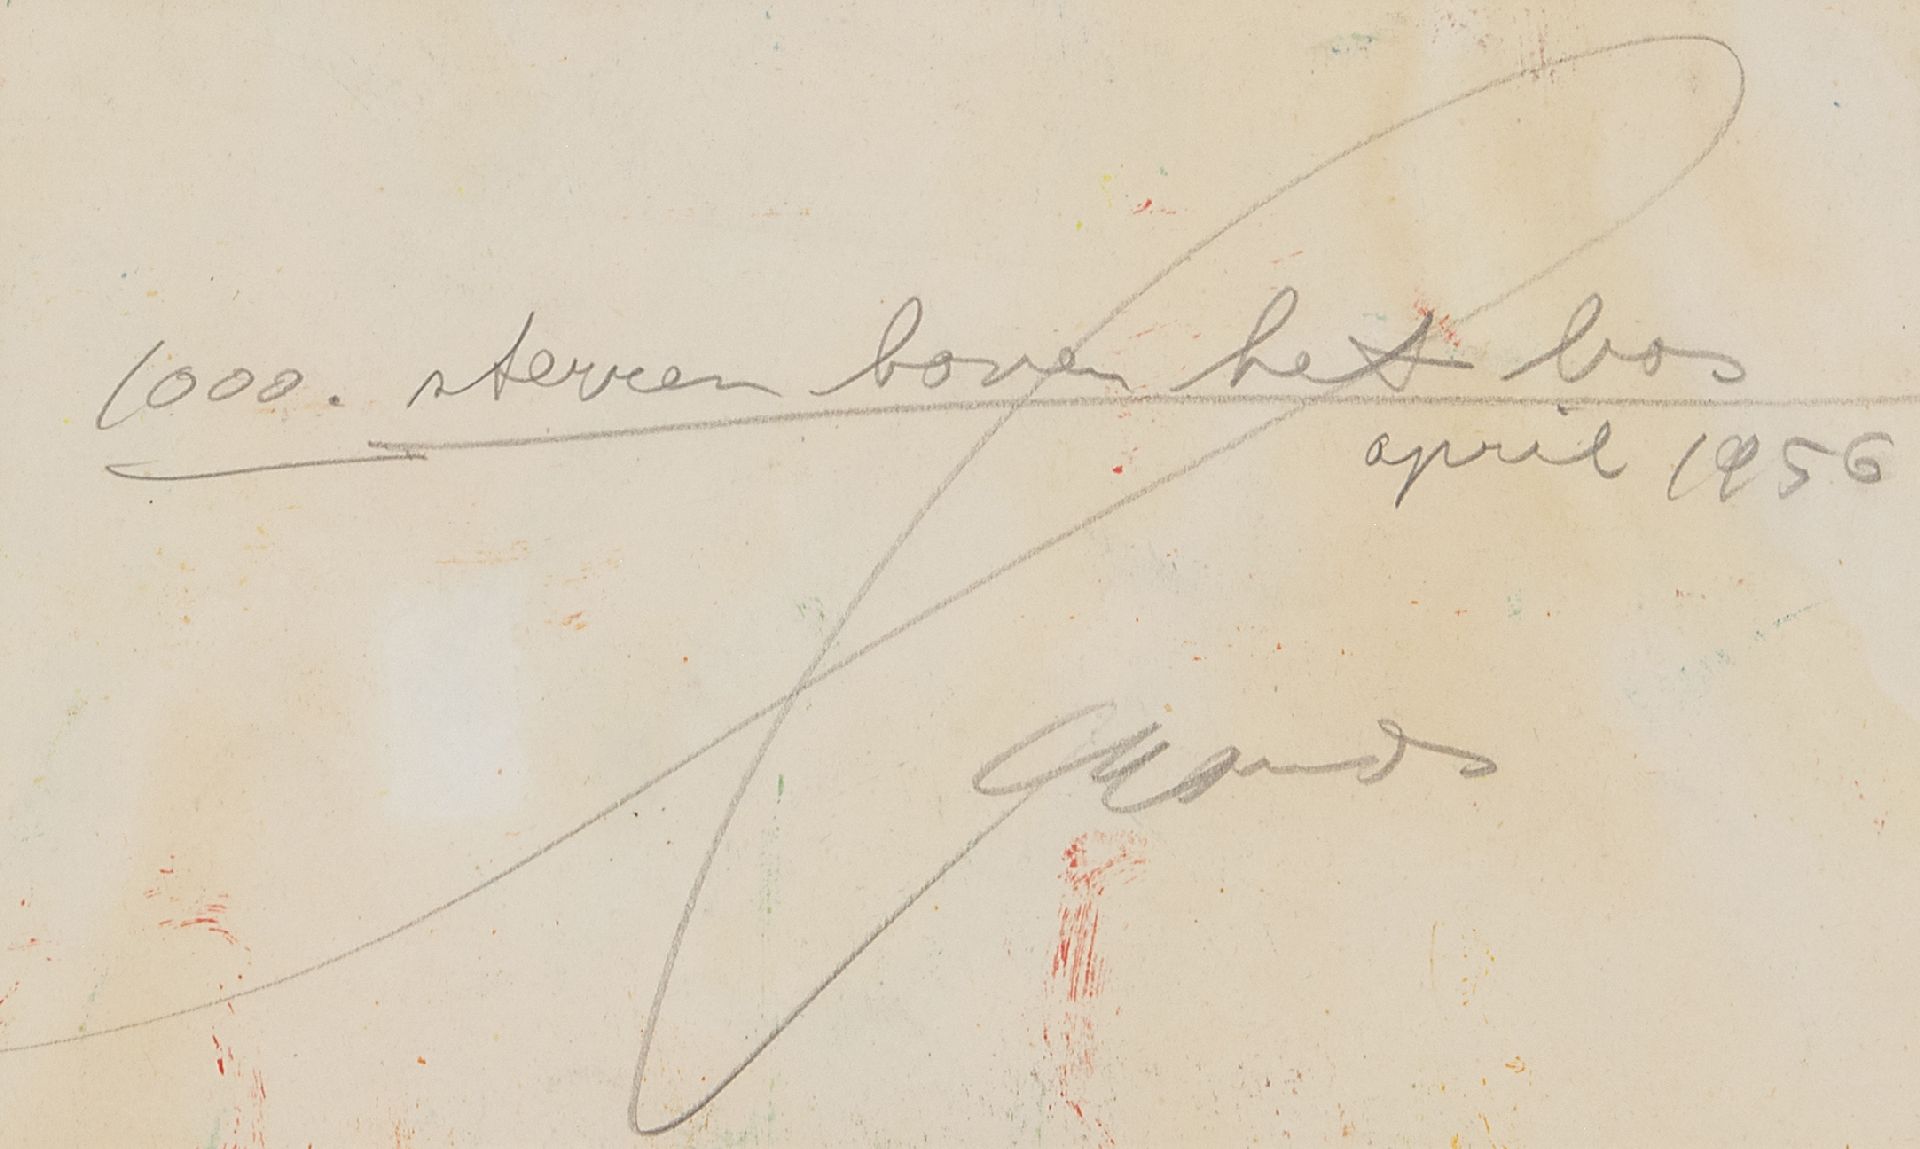 1000. sterren boven het bos
april 1956